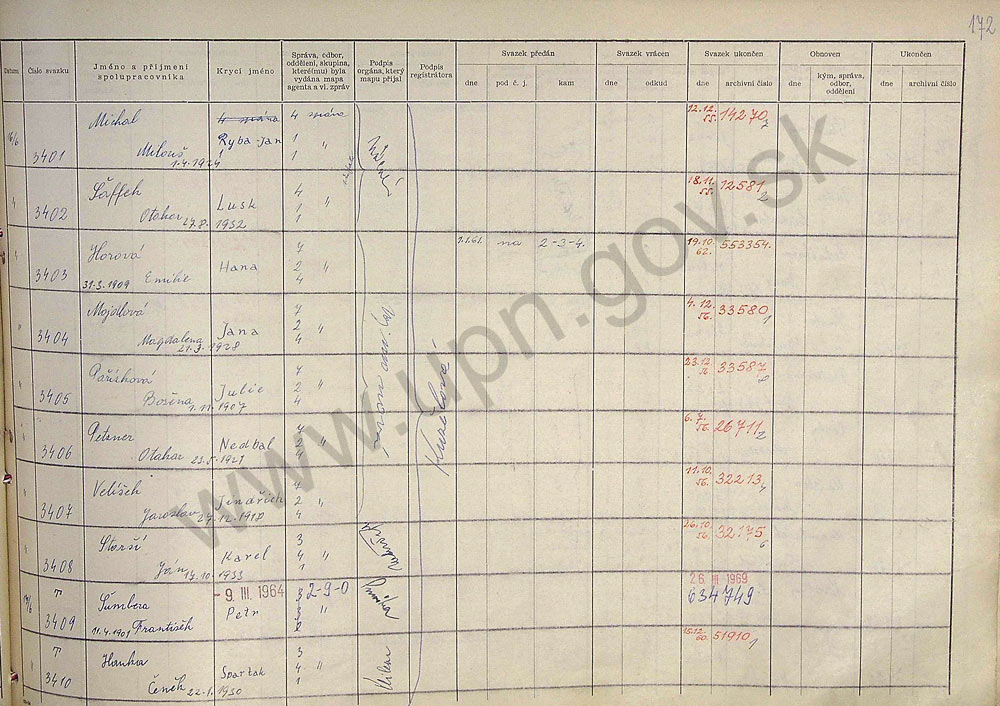 172
Datum
Číslo svazku
Jméno a příjmení spolupracovníka
Krycí jméno
Správa, odbor, oddělení, skupina, které(mu) byla vydána mapa agenta a vl. zpráv
Podpis orgána, který mapu přijal
Podpis registrátora
Svazek předán
dne
pod č. j.
kam
Svazek vrácen
dne
odkud
Svazek ukončen
dne
archivní číslo
Obnoven
dne
kým, správa, odbor, oddělení
Ukončen
dne
archivní číslo
3401
Michal
Miloš
1.4.1924
Ryba-Jan
4 správa
1 "
1
12.12.
55.
14270
3402
Otakar 27.8. 1932
Lusk
4
1 "
1
18.11.
55.
12581
2
3403
Horová
31.3.1909 Emilie
Hana
7
2 "
4
1.1.61. na 2-3-4.
19.10.
62.
553354.
3404
Magdalena
21.3.1928
Jana
7
2 "
4
4.12.
56.
33580
1
3405
Božena
1.11.1907
Julie
7
2 "
4
23.12.
56.
33587
3406
Petzner
Otakar 23.5.1921
Nedbal
7
2 "
4
6.7.
56.
26711
2
3407
Jaroslav 27.12.1918
Jindřich
7
2 "
4
11.10.
56.
32213
3408
Starší
Ján 17.10.1933
Karel
3
4 "
1
26.10.
56.
32175
6
T
3409
Šumbera
11.4.1901 František
- 9. III. 1964
Petr
2-9-0
26 III 1969
634749
T
3410
Hanka
Čeněk 22.1.1930
Spartak
3
4 "
1
15.12.
60.
51910
1
Kuzelová
www.upn.gov.sk